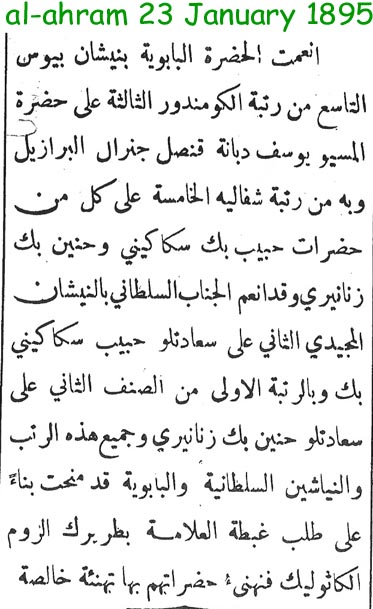 al-ahram 23 January 1895
انعمت الحضرة البابوية بنيشان بيوس
التاسع من رتبة الكومندور الثالثة على حضرة
المسيو يوسف دبانة قنصل جنرال البرازيل
وبه من رتبة شفاليه الخامسة على كل من
حضرات حبيب بك سكاكيني وحنين بك
زنانيري وقد انعم الجناب السلطاني بالنيشان
المجيدي الثاني على سعادتلو حبيب سكاكيني
بك وبالرتبة الاولى من الصنف الثاني على
سعادتلو حنين بك زنانيري وجميع هذه الرتب
والنياشين السلطانية والبابوية قد منحت بناءً
على طلب غبطة العلامة بطريرك الروم
الكاثوليك فنهنئ حضراتهم بها تهنئة خالصة